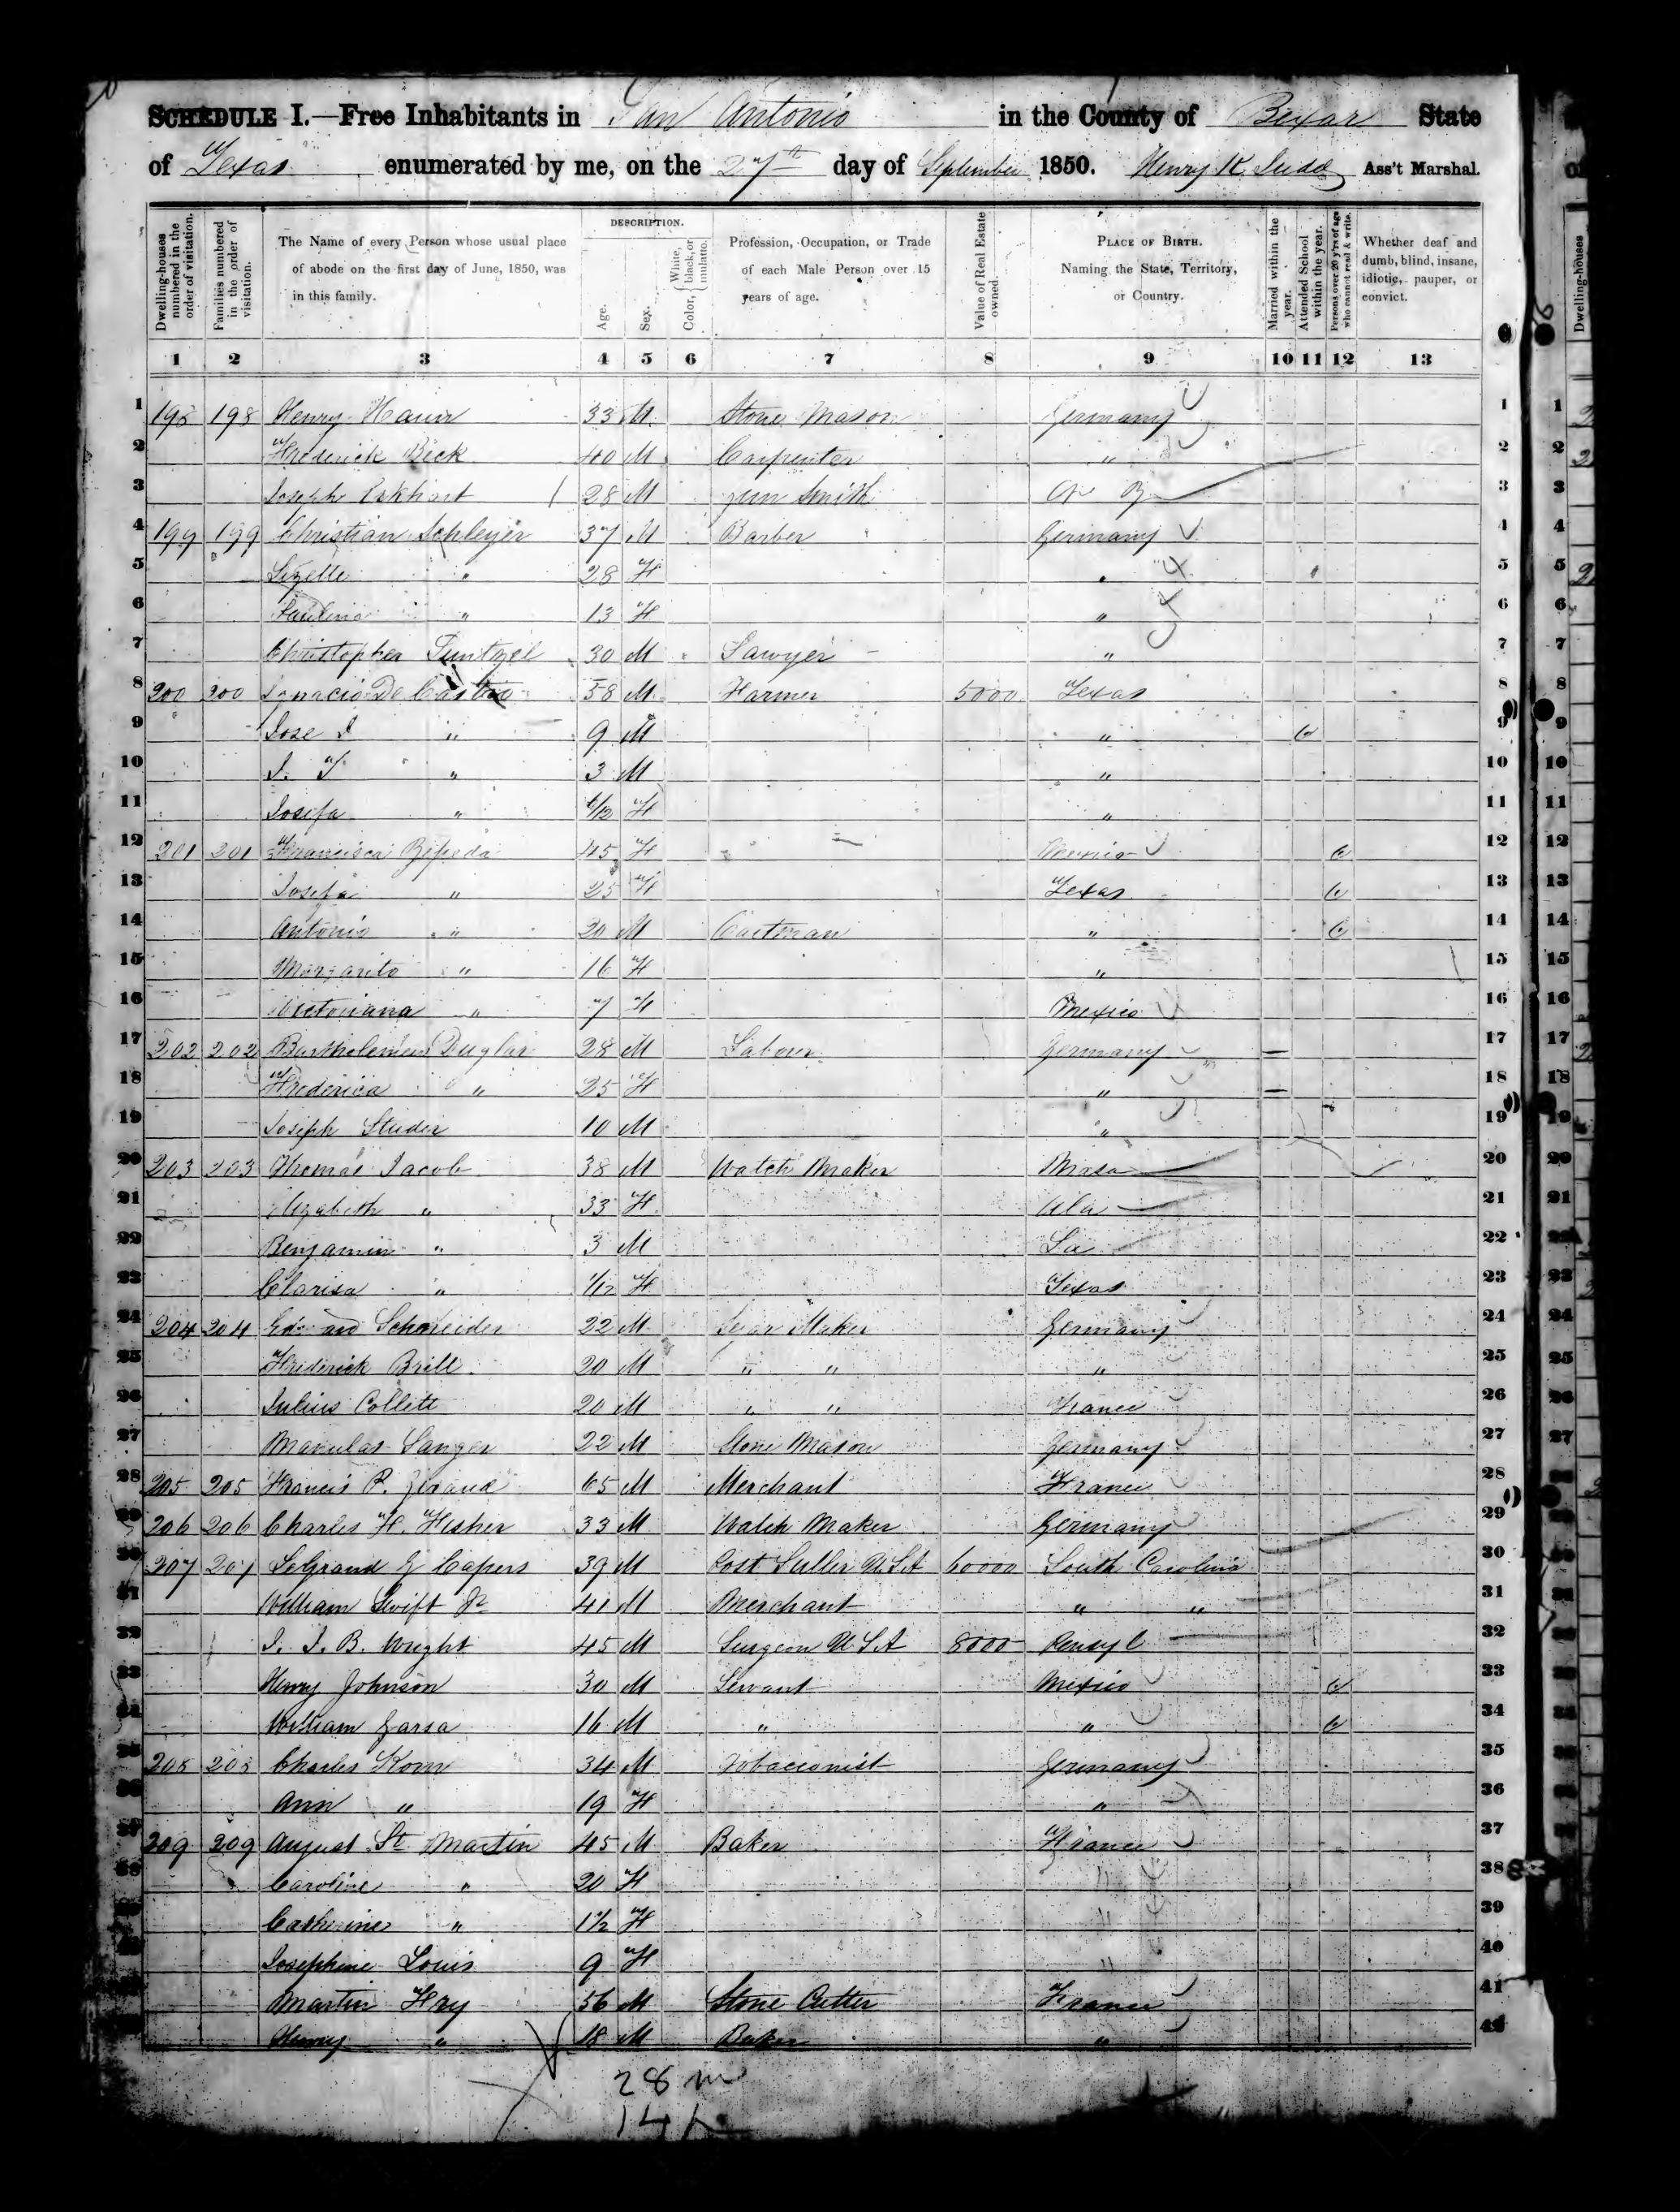 SCHEDULE I.—Free Inhabitants in San Antonio in the County of Bexar State
of Texas enumerated by me, on the 27th day of September 1850. Henry K. Judd Ass't Marshal.
Dwelling-houses numbered in the order of visitation.
Families numbered in the order of visitation.
The Name of every Person whose usual place of abode on the first day of June, 1850, was in this family.
DESCRIPTION.
Age.
Sex.
Color, { White, black, or mulatto.
Profession, Occupation, or Trade of each Male Person over 15 years of age.
Value of Real Estate owned.
PLACE OF BIRTH. Naming the State, Territory, or Country.
Married within the year.
Attended School within the year.
Persons over 20 y'rs of age who cannot read & write.
Whether deaf and dumb, blind, insane, idiotic, pauper, or convict.
1 2 3 4 5 6 7 8 9 10 11 12 13
1 198 198 Henry 33 M Stone Mason Germany 1
2 Frederick Beck 40 M Carpenter " 2
3 Joseph 28 M Gun Smith 3
4 199 199 Christian Schleyer 37 M Barber Germany 4
5 Lizette " 28 F " 5
6 Paulina " 13 F " 6
7 Christopher 30 M Sawyer " 7
8 200 200 Ignacio De Castro 58 M Farmer 5000 Texas 8
9 Jose I " 9 M " 9
10 J. T " 3 M " 10
11 Josefa " /12 F " 11
12 201 201 Francisca Zepeda 45 F Mexico 12
13 Josefa " 25 F Texas 13
14 Antonio " 20 M Cartman " 14
15 Margarito " 16 F " 15
16 Victoriana " 7 F Mexico 16
17 202 202 Bartholemew Duglar 28 M Labour Germany 17
18 Frederica " 25 F " 18
19 Joseph Studer 10 M " 19
20 203 203 Thomas Jacob 38 M Watch Maker Masa 20
21 Elizabeth " 33 F Ala 21
22 Benjamin " 3 M La 22
23 Clarisa " 1/12 F Texas 23
24 204 204 Edward Schneider 22 M Segar Maker Germany 24
25 Frederick Brill 20 M " " " 25
26 Julius Collett 20 M " " France 26
27 Sanger 22 M Stone Mason Germany 27
28 205 205 Francis P. Giraud 65 M Merchant France 28
29 206 206 Charles F. Fisher 33 M Watch Maker Germany 29
30 207 207 LeGrand G Capers 39 M Post Sutler U.S.A 60000 South Carolina 30
31 William Swift Jr 41 M Merchant " " 31
32 J. J. B. Wright 45 M Surgeon U S A 8000 Pensyl 32
33 Henry Johnson 30 M Servant Mexico 33
34 William Garsa 16 M " " 34
35 208 208 Charles Korn 34 M Tobacconist Germany 35
36 Ann " 19 F " 36
37 209 209 August St Martin 45 M Baker France 37
38 Caroline " 20 F " 38
39 Catherine " 1 1/2 F " 39
40 Josephine Louis 9 F " 40
41 Martin Fry 56 M Stone Cutter France 41
42 Henry " 18 M Baker " 42
28 m
14 f